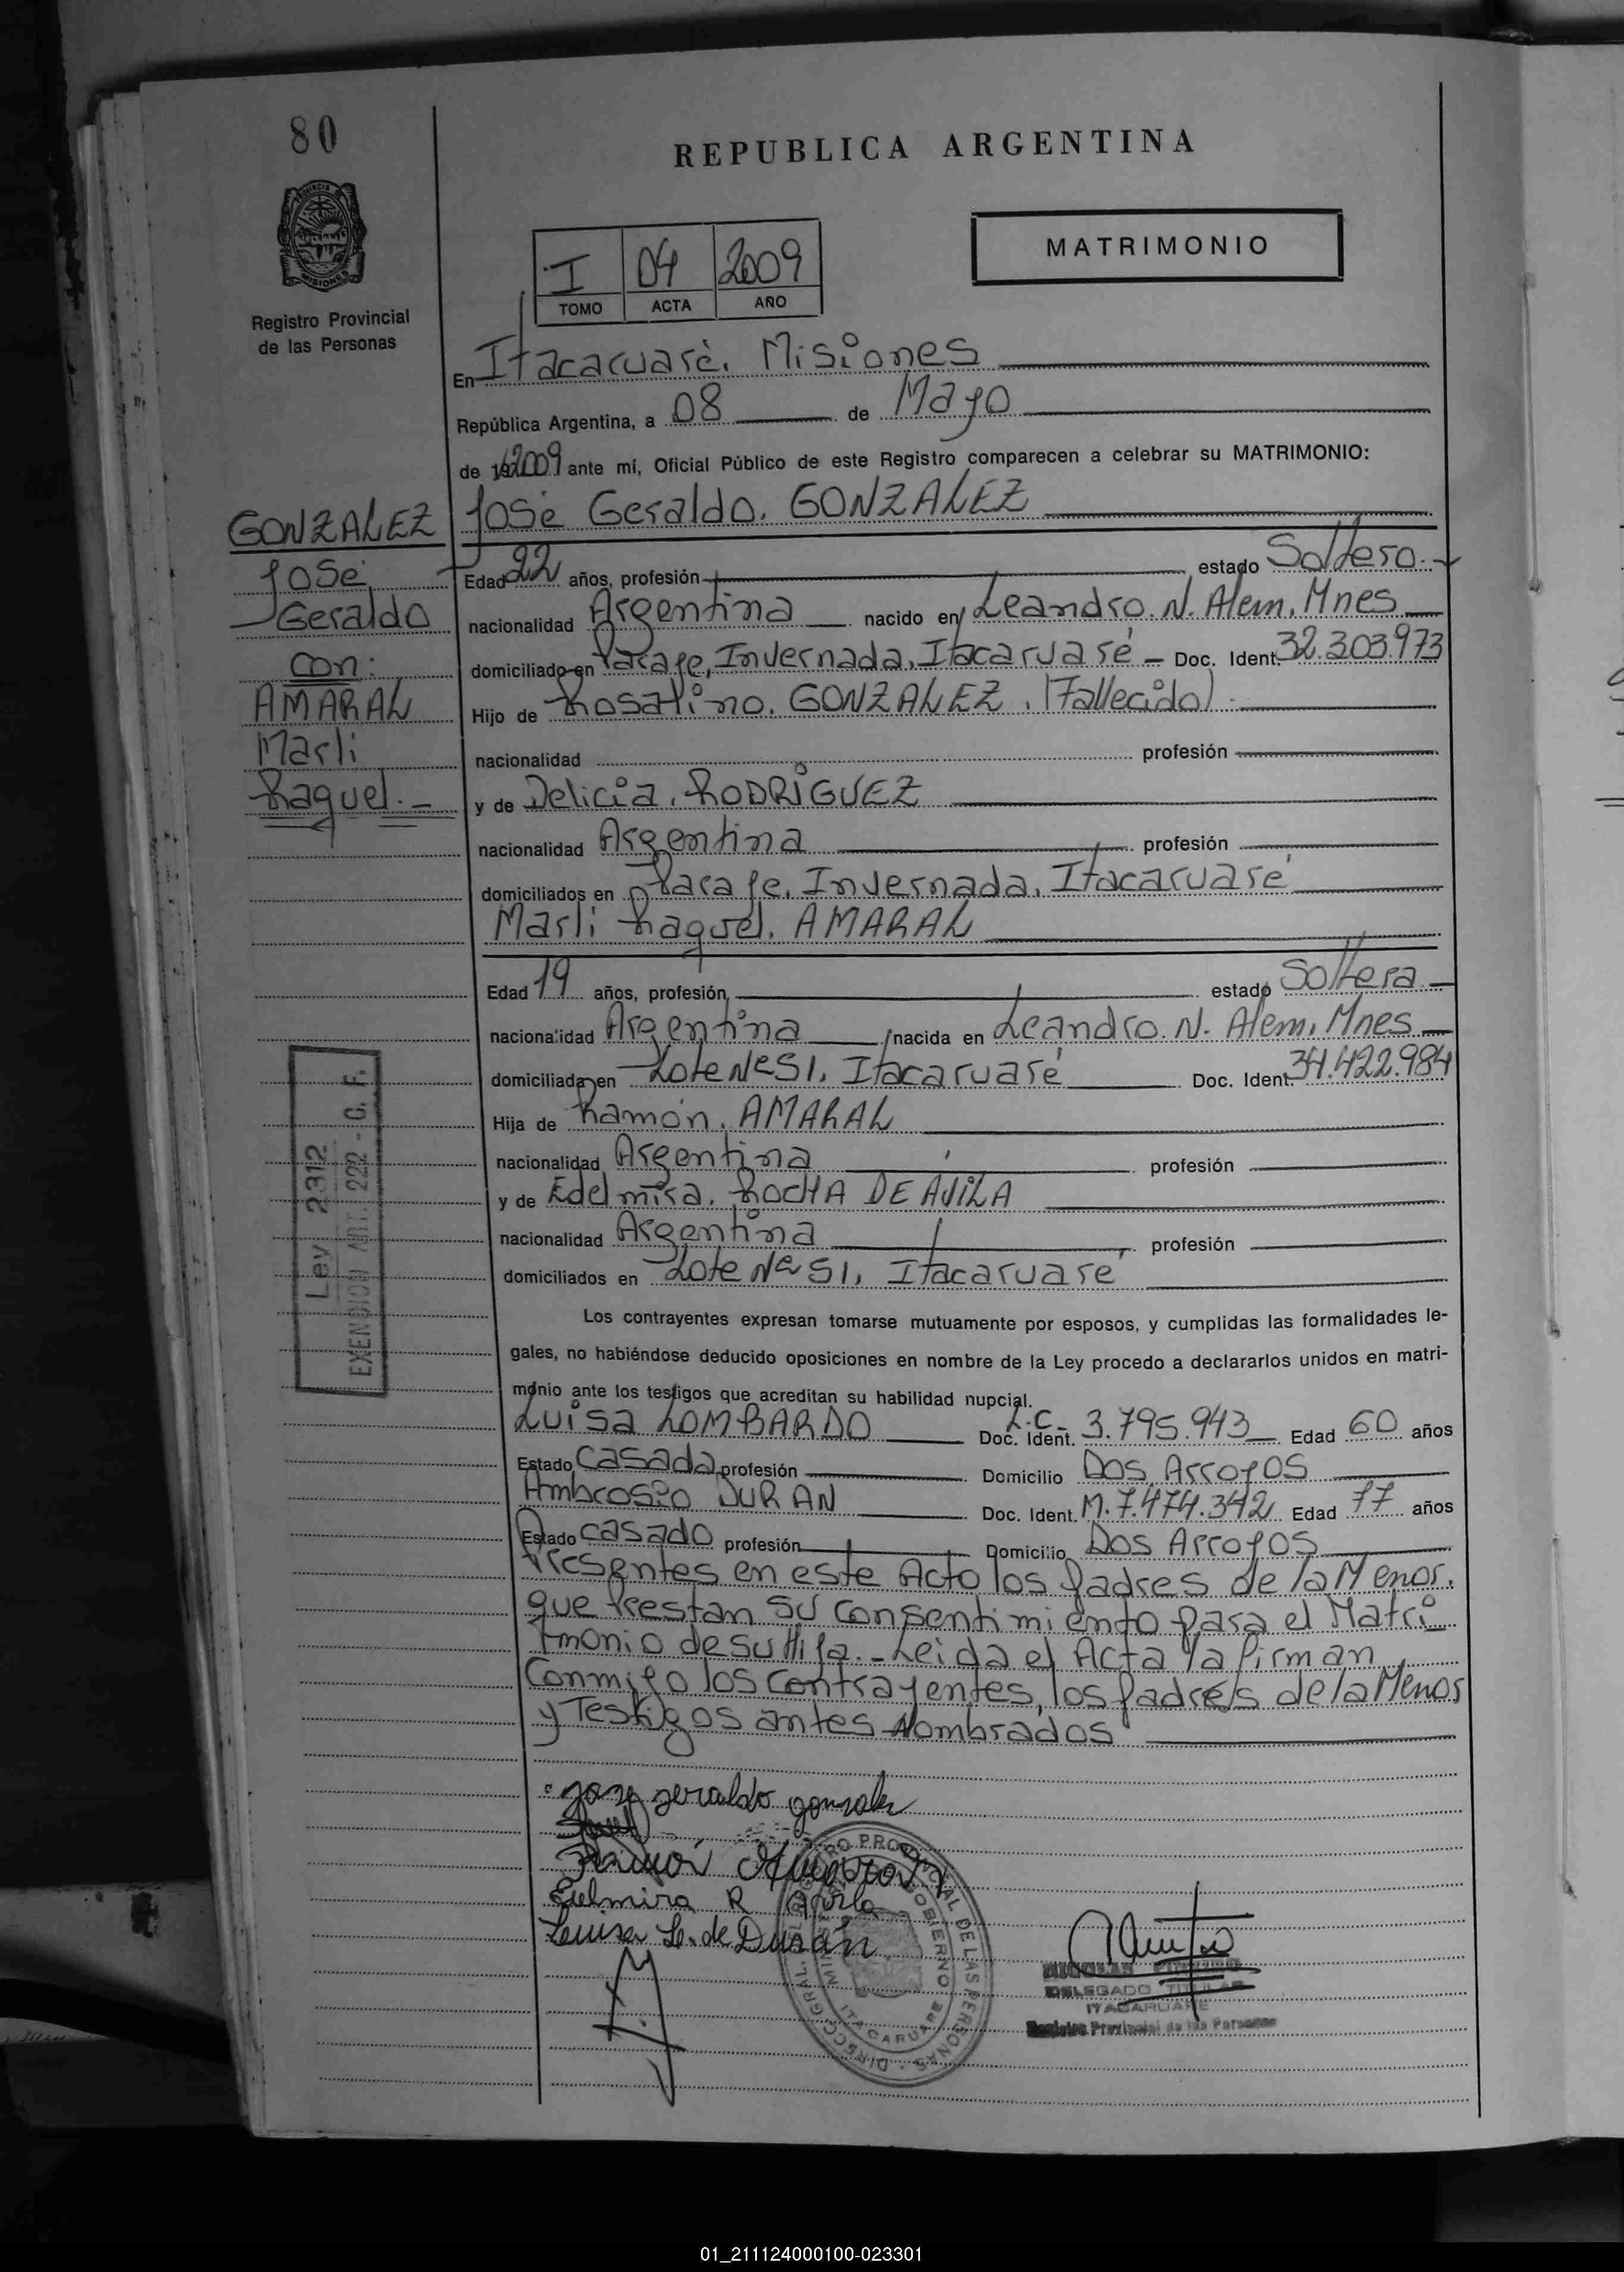 80
REPUBLICA ARGENTINA
MATRIMONIO
I 04 2009
TOMO ACTA AÑO
Registro Provincial
de las Personas
En Itacaruaré. Misiones
República Argentina, a 08 de Mayo
de 2009 ante mí, Oficial Público de este Registro comparecen a celebrar su MATRIMONIO:
GONZALEZ
José
Geraldo
con:
AMARAL
Marli
Raquel.-
José Geraldo. GONZALEZ
Edad 22 años, profesión estado Soltero.-
nacionalidad Argentina nacido en Leandro. N. Alem. Mnes
domiciliado en Paraje, Invernada, Itacaruaré - Doc. Ident. 32.303.973
Hijo de Rosalino. GONZALEZ. (Fallecido)
nacionalidad profesión
y de Delicia. RODRiGUEZ
nacionalidad Argentina profesión
domiciliados en Paraje, Invernada, Itacaruaré
Marli Raquel. AMARAL
Edad 19 años, profesión estado Soltera
nacionalidad Argentina nacida en Leandro. N. Alem, Mnes
domiciliada en Lote Nº 51, Itacaruaré Doc. Ident. 34.422.984
Hija de Ramón. AMARAL
nacionalidad Argentina profesión
y de Edelmira. ROCHA DE AViLA
nacionalidad Argentina profesión
domiciliados en Lote Nº 51, Itacaruaré
Ley 2312
EXENCION ART. 222 - C. F.
Los contrayentes expresan tomarse mutuamente por esposos, y cumplidas las formalidades le-
gales, no habiéndose deducido oposiciones en nombre de la Ley procedo a declararlos unidos en matri-
monio ante los testigos que acreditan su habilidad nupcial.
Luisa LOMBARDO L.C. Doc. Ident. 3.795.943 Edad 60 años
Estado casada profesión Domicilio Dos Arroyos
Ambrosio DURAN Doc. Ident. M. 7.474.342 Edad 77 años
Estado casado profesión Domicilio Dos Arroyos
Presentes en este Acto los padres de la Menor.
que Prestan su consentimiento para el Matri
monio de su Hija.- Leida el Acta la firman
Conmigo los contrayentes, los padres de la Menor
y Testigos antes Nombrados
jose geraldo gonzalez
Edelmira R Avila
Luisa L. de Durán
DELEGADO TITULAR
ITACARUARE
Registro Provincial de las Personas
01_211124000100-023301